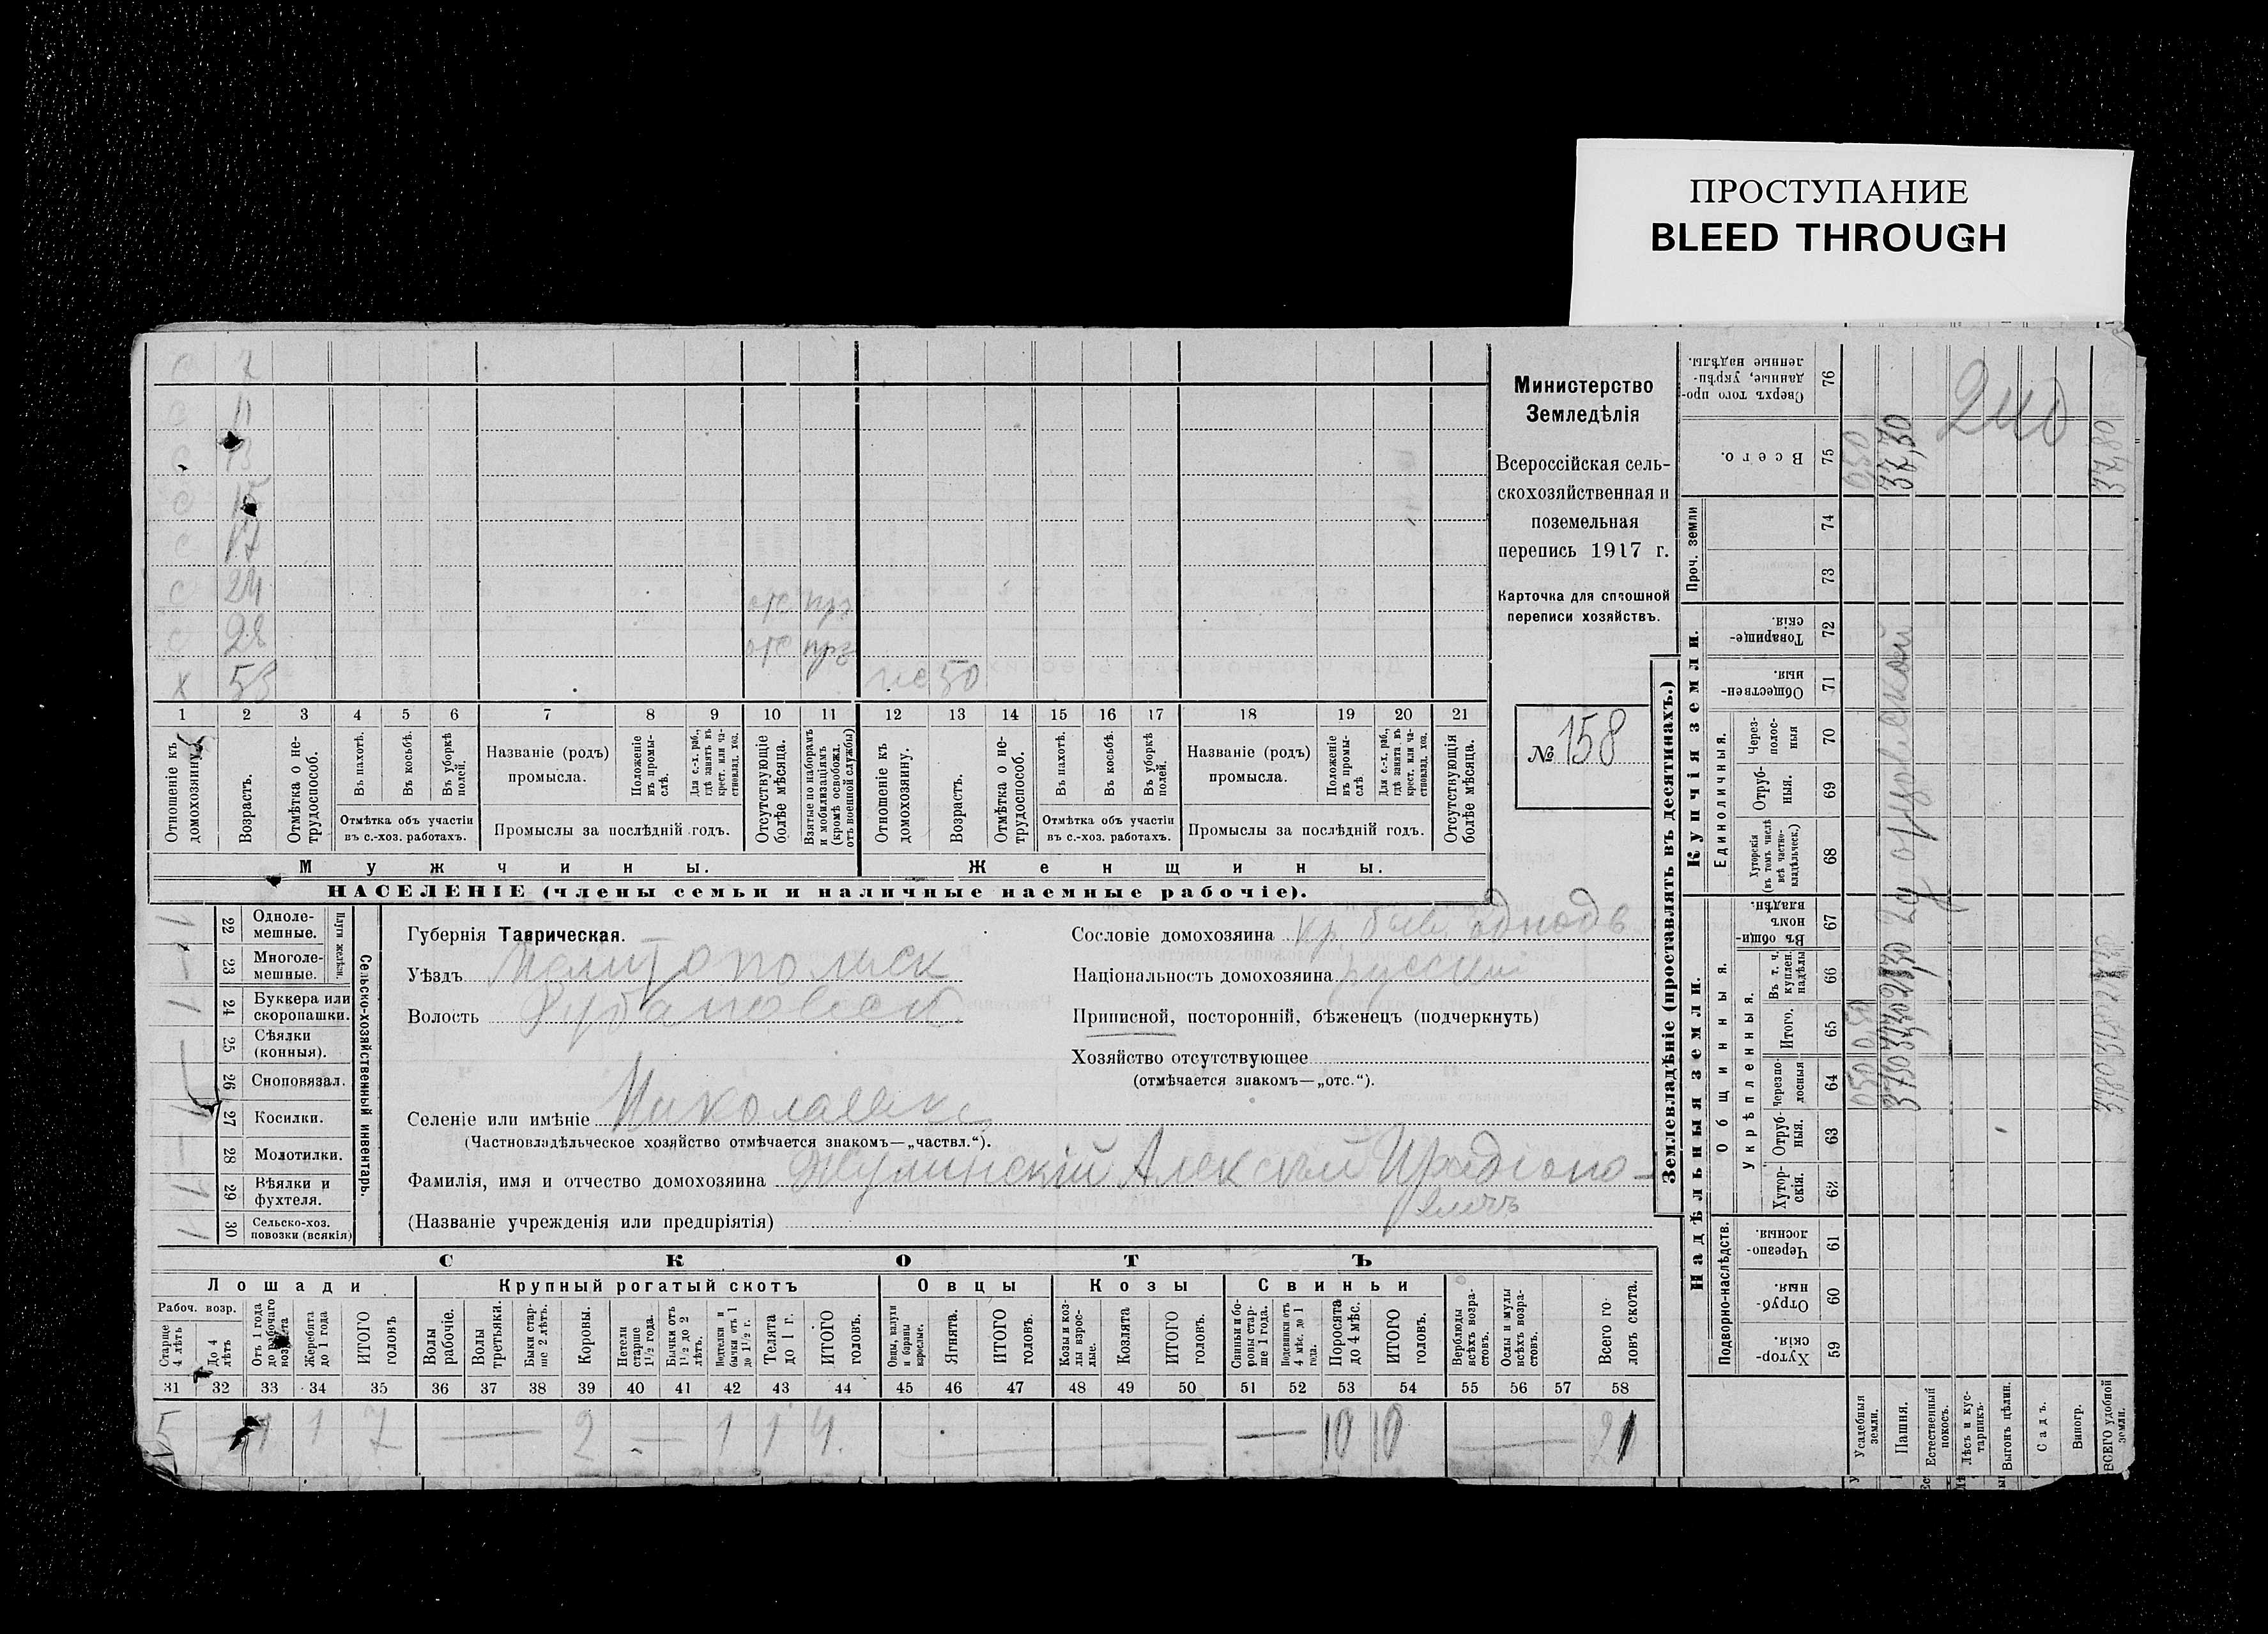 ПРОСТУПАНИЕ
BLEED THROUGH
7
11
13
15
17
с 24 отс
с 28 отс
х 55 50
1 2 3 4 5 6 7 8 9 10 11 12 13 14 15 16 17 18 19 20 21
Отношеніе къ домохозяину.
Возрастъ.
Отмѣтка о не-
трудоспособ.
Въ пахотѣ.
Въ косьбѣ.
Въ уборкѣ
полей.
Отмѣтка объ участіи
въ с.-хоз. работахъ.
Названіе (родъ)
промысла.
Положеніе
въ промы-
слѣ.
Для с.-х. раб.,
гдѣ занятъ въ
крест. или ча-
стновлад. хоз.
Промыслы за послѣдній годъ.
Отсутствующіе
болѣе мѣсяца.
Взятые по наборамъ
и мобилизаціямъ
(кромѣ освобожд.
отъ военной службы)
Отношеніе къ
домохозяину.
Возрастъ.
Отмѣтка о не-
трудоспособ.
Въ пахотѣ.
Въ косьбѣ.
Въ уборкѣ
полей.
Отмѣтка объ участіи
въ с.-хоз. работахъ.
Названіе (родъ)
промысла.
Положеніе
въ промы-
слѣ.
Для с.-х. раб.,
гдѣ занята въ
крест. или ча-
стновлад. хоз.
Промыслы за послѣдній годъ.
Отсутствующія
болѣе мѣсяца.
Мужчины.
Женщины.
НАСЕЛЕНІЕ (члены семьи и наличные наемные рабочіе).
Министерство
Земледѣлія
Всероссійская сель-
скохозяйственная и
поземельная
перепись 1917 г.
Карточка для сплошной
переписи хозяйствъ.
№ 158
22 Одноле-
мешные.
23 Многоле-
мешные.
Плуги желѣзн.
24 Буккера или
скоропашки.
25 Сѣялки
(конныя).
26 Сноповязал.
27 Косилки.
28 Молотилки.
29 Вѣялки и
фухтеля.
30 Сельско-хоз.
повозки (всякія)
Сельско-хозяйственный инвентарь.
Губернія Таврическая.
Уѣздъ Мелитопольск
Волость Рубановск
Селеніе или имѣніе
(Частновладѣльческое хозяйство отмѣчается знакомъ—„частвл.“).
Фамилія, имя и отчество домохозяина Алексѣй
(Названіе учрежденія или предпріятія)
Сословіе домохозяина кр. быв.
Національность домохозяина русскій
Приписной, посторонній, бѣженецъ (подчеркнуть)
Хозяйство отсутствующее
(отмѣчается знакомъ—„отс.“).
СКОТЪ
Лошади
Крупный рогатый скотъ
Овцы
Козы
Свиньи
Рабоч. возр.
Старше
4 лѣтъ
До 4
лѣтъ
Отъ 1 года
до рабочаго
возраста
Жеребята
до 1 года
ИТОГО
головъ
Волы
рабочіе.
Волы
третьяки.
Быки стар-
ше 2 лѣтъ.
Коровы.
Нетели
старше
1½ года.
Бычки отъ
1½ до 2
лѣтъ.
Подтелки и
бычки отъ 1
до 1½ г.
Телята
до 1 г.
ИТОГО
головъ.
Овцы, валухи
и бараны
взрослые.
Ягнята.
ИТОГО
головъ.
Козы и коз-
лы взрос-
лые.
Козлята
ИТОГО
головъ.
Свиньи и бо-
ровы стар-
ше 1 года.
Подсвинки отъ
4 мѣс. до 1
года.
Поросята
до 4 мѣс.
ИТОГО
головъ.
Верблюды
всѣхъ возра-
стовъ.
Ослы и мулы
всѣхъ возра-
стовъ.
Всего го-
ловъ скота.
31 32 33 34 35 36 37 38 39 40 41 42 43 44 45 46 47 48 49 50 51 52 53 54 55 56 57 58
5 — 1 1 7 — 2 — 1 1 4. — — 10 10 — 21
Землевладѣніе (проставлять въ десятинахъ.)
Купчія земли.
Надѣльныя земли.
Сверхъ того про-
данные, укрѣп-
ленные надѣлы.
76
Всего.
75
Проч. земли
74
73
Товарище-
скія.
72
Обществен-
ныя.
71
Единоличныя.
Через-
полос-
ныя
70
Отруб-
ныя.
69
Хуторскія
(въ томъ числѣ
всѣ частно-
владѣльческ.)
68
Общинныя.
Въ общин-
номъ
владѣн.
67
Укрѣпленныя.
Въ т. ч.
куплен.
надѣлы
66
Итого.
65
Черезпо-
лосныя
64
Отруб-
ныя.
63
Хутор-
скія.
62
Подворно-наслѣдств.
Черезпо-
лосныя.
61
Отруб-
ныя.
60
Хутор-
скія.
59
Усадебныя
земли.
Пашня.
Естественный
покосъ.
Лѣсъ и кус-
тарникъ.
Выгонъ цѣлин.
Садъ.
Виногр.
ВСЕГО удобной
земли.
050 0,50 050
3730 3730 37,30
240
3780 37,80